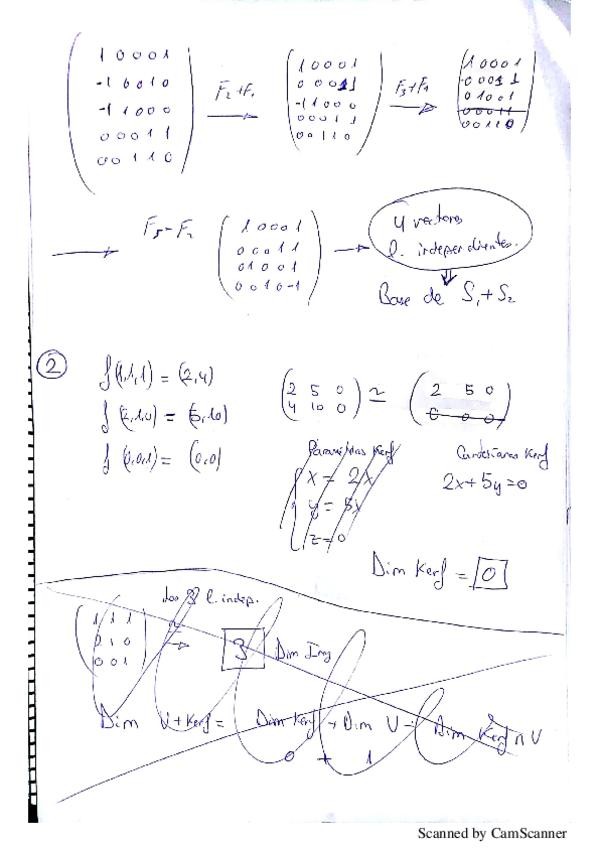 1 0 0 0 1
-1 0 0 1 0
-1 1 0 0 0
0 0 0 1 1
0 0 1 1 0
F₂+F₁
1 0 0 0 1
0 0 0 1 1
-1 1 0 0 0
0 0 0 1 1
0 0 1 1 0
F₃+F₁
1 0 0 0 1
0 0 0 1 1
0 1 0 0 1
0 0 0 1 1
0 0 1 1 0
F₅-F₂
1 0 0 0 1
0 0 0 1 1
0 1 0 0 1
0 0 1 0 -1
4 vectores
l. independientes.
Base de S₁+S₂
2
f(1,1,1) = (2,4)
f(2,1,0) = (5,10)
f(0,0,1) = (0,0)
2 5 0
4 10 0
≃
2 5 0
0 0 0
Paramétricas Kerf
x = 2x
y = 5x
z = 0
Cartesianas Kerf
2x+5y=0
Dim Kerf = 0
los 3 l. indep.
1 1 1
2 1 0
0 0 1
3 Dim Img
Dim U+Kerf = Dim Kerf + Dim U - Dim Kerf ∩ U
0 + 1
Scanned by CamScanner